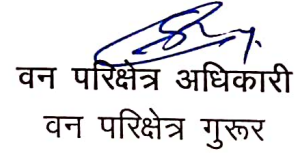 वन परिक्षेत्र अधिकारी
वन परिक्षेत्र गुरूर